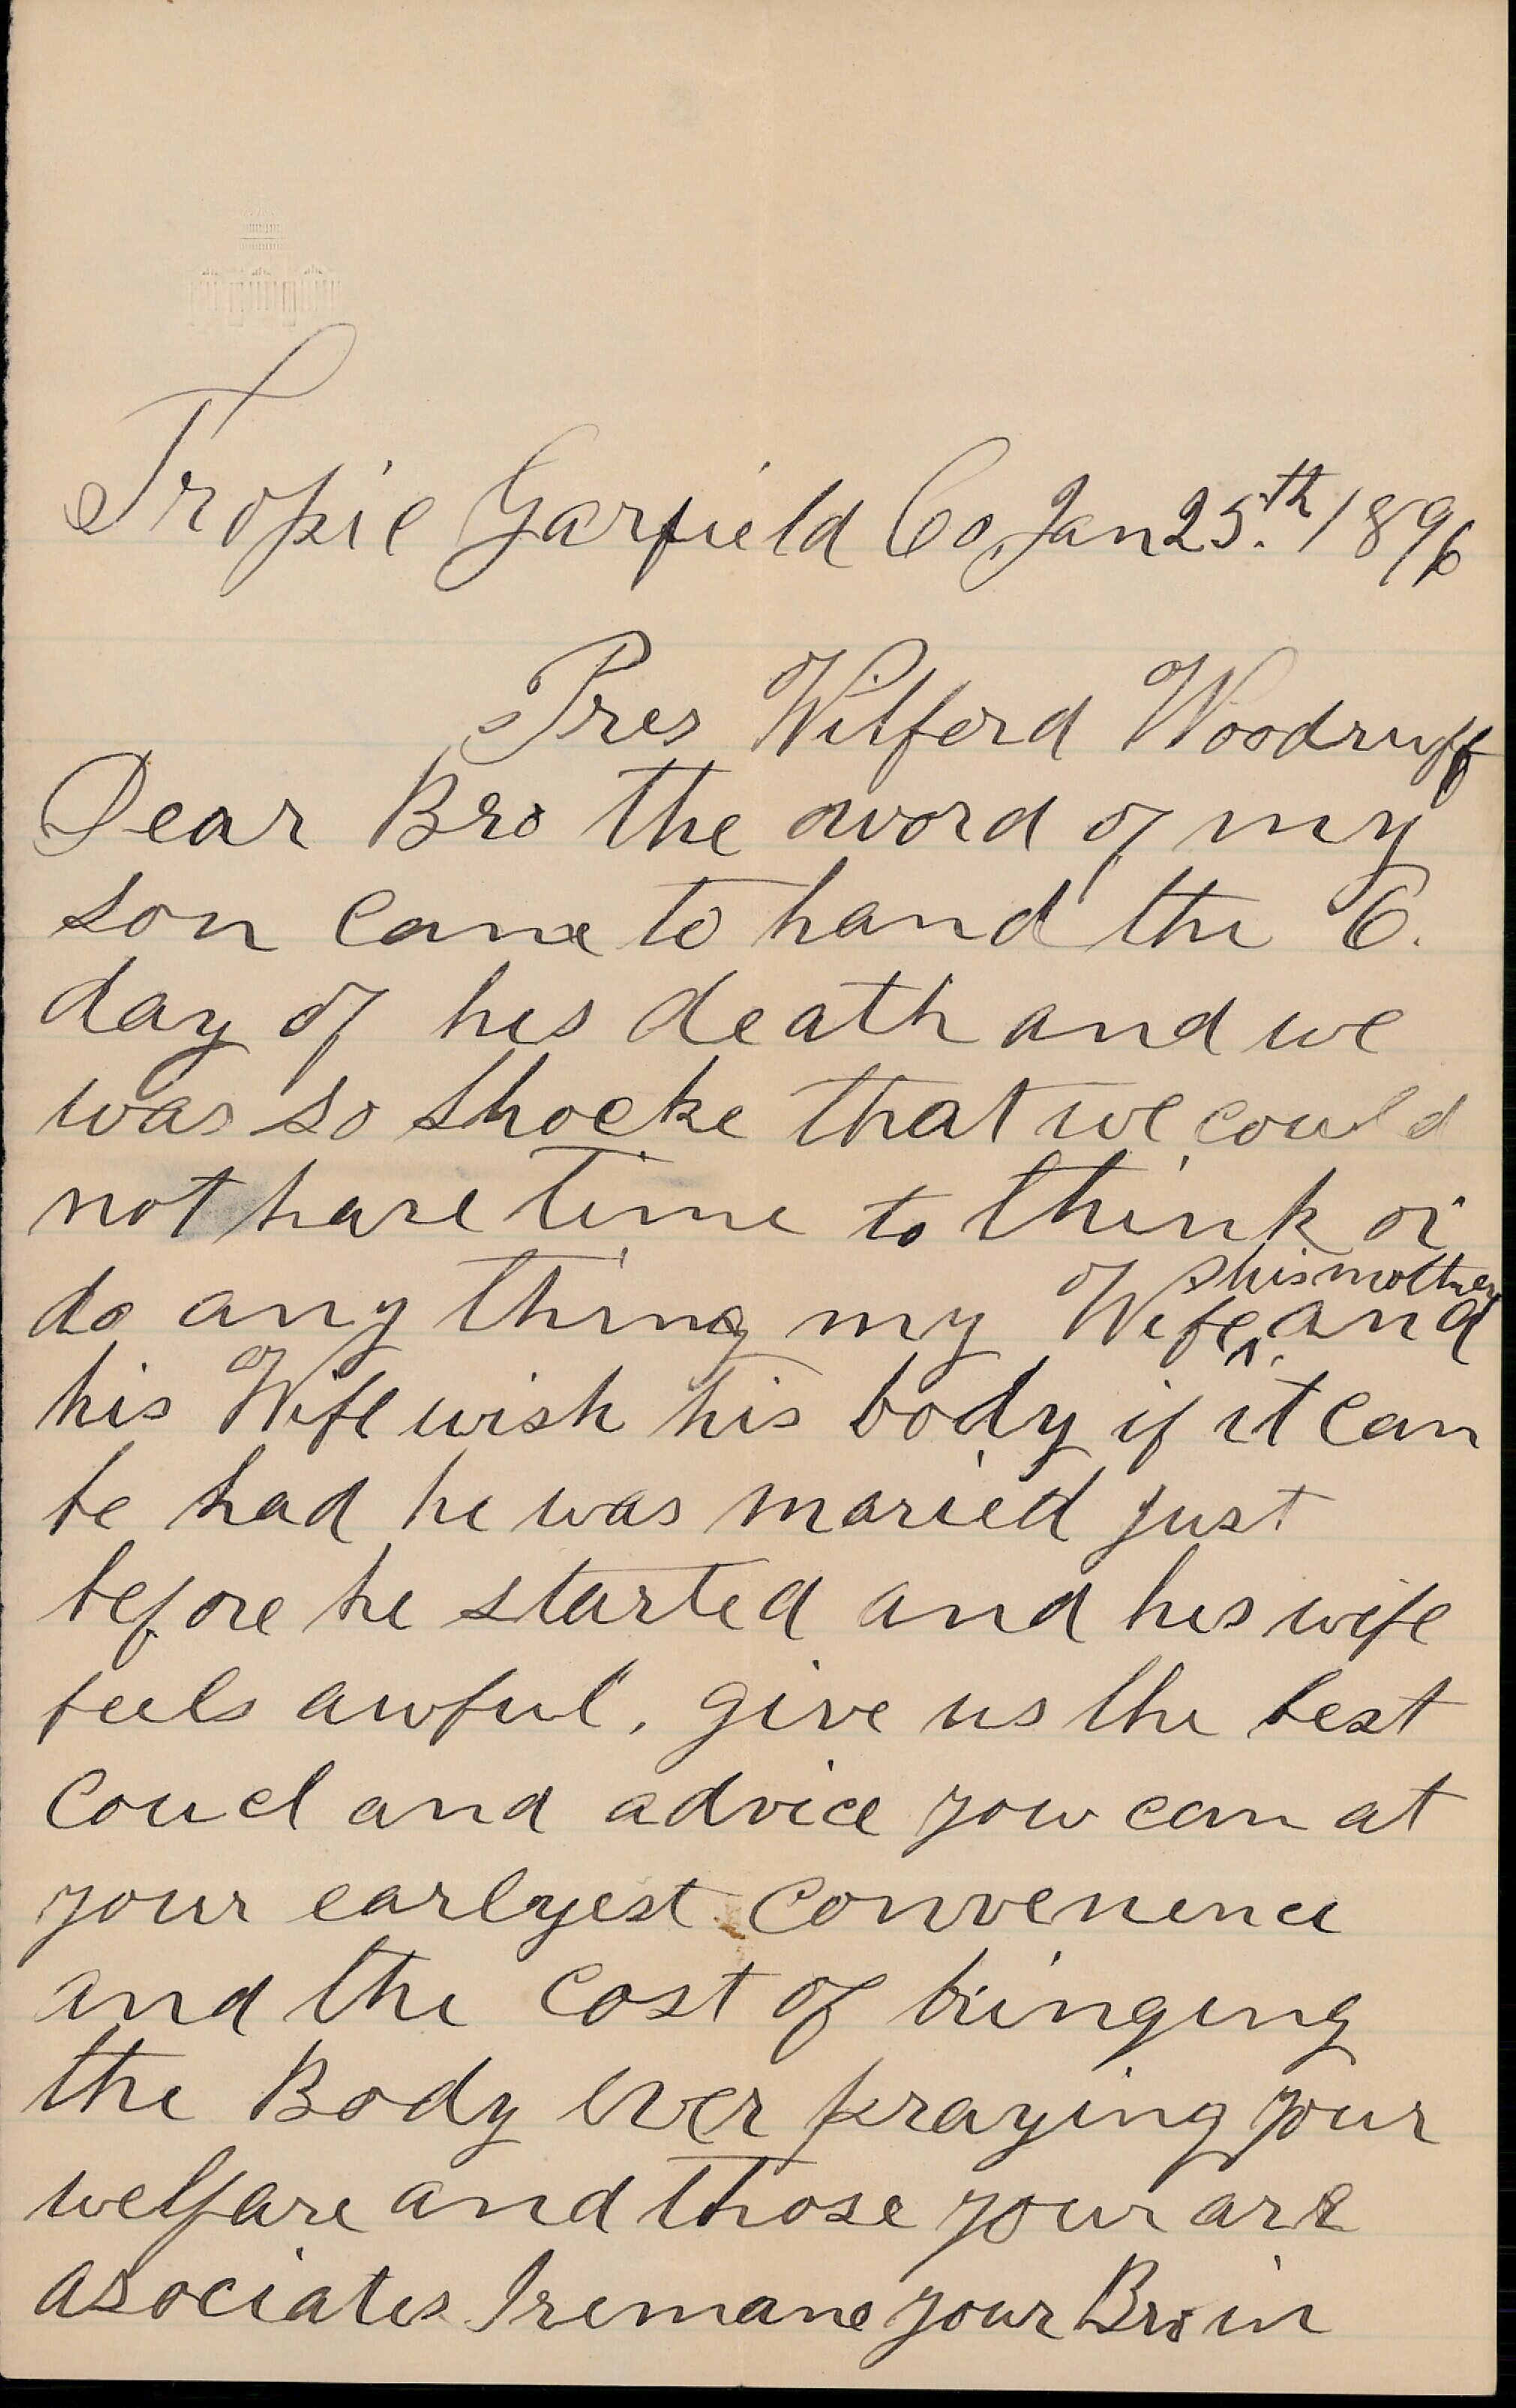 Tropic Garfield Co, Jan 25.th 1896
Pres Wilford Woodruff
Dear Bro the word of my
son came to hand the 6.
day of his death and we
was so shocke that we could
not have time to think or
do any thing my Wife ^his mother^ and
his Wife wish his body if it can
be had he was maried just
before he started and his wife
feels awful. give us the best
Coucl and advice you can at
your earlyest convenence
and the cost of bringing
the Body over praying your
welfare and those your are
asociates I remane your Bro in